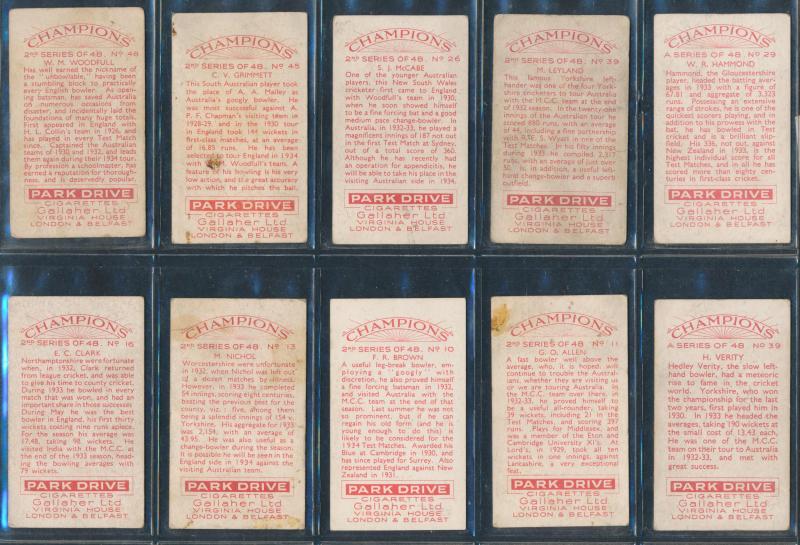 CHAMPIONS
2ND SERIES OF 48. No 48
W. M. WOODFULL
Has well earned the nickname of
the "unbowlable," having been
a stumbling block to practically
every English bowler. As open-
ing batsman, has saved Australia
on numerous occasions from
disaster, and incidentally laid the
foundations of many huge totals.
First appeared in England with
H. L. Collin's team in 1926, and
has played in every Test Match
since. Captained the Australian
teams of 1930 and 1932, and leads
them again during their 1934 tour.
By profession a schoolmaster, has
earned a reputation for thorough-
ness, and is deservedly popular.
PARK DRIVE
CIGARETTES
Gallaher Ltd
VIRGINIA HOUSE
LONDON & BELFAST
CHAMPIONS
2ND SERIES OF 48. No 45
C. V. GRIMMETT
This South Australian player took
the place of A. A. Mailey as
Australia's googly bowler. He
was most successful against A.
P. F. Chapman's visiting team in
1928-29, and in the 1930 tour
in England took 144 wickets in
first-class matches, at an average
of 16.85 runs. He has been
selected to tour England in 1934
with W. Woodfull's team. A
feature of his bowling is his very
low action, and the great accuracy
with which he pitches the ball.
PARK DRIVE
CIGARETTES
Gallaher Ltd
VIRGINIA HOUSE
LONDON & BELFAST
CHAMPIONS
2ND SERIES OF 48. No 26
S. J. McCABE
One of the younger Australian
players, this New South Wales
cricketer first came to England
with Woodfull's team in 1930,
when he soon showed himself
to be a fine forcing bat and a good
medium pace change-bowler. In
Australia, in 1932-33, he played a
magnificent innings of 187 not out
in the first Test Match at Sydney,
out of a total of 360. Although
he has recently had
an operation for appendicitis, he
will be able to take his place in the
visiting Australian side in 1934.
PARK DRIVE
CIGARETTES
Gallaher Ltd
VIRGINIA HOUSE
LONDON & BELFAST
CHAMPIONS
2ND SERIES OF 48. No 39
M. LEYLAND
This famous Yorkshire left-
hander was one of the four York-
shire cricketers to tour Australia
with the M.C.C. team at the end
of 1932 season. In the twenty-odd
innings of that Australian tour he
scored 880 runs, with an average
of 44, including a fine partnership
with R.E. S. Wyatt in one of the
Test Matches. In his fifty innings
during 1933 he compiled 2,317
runs, with an average of just over
50. Is, in addition, a useful left-
hand change-bowler and a superb
outfield.
PARK DRIVE
CIGARETTES
Gallaher Ltd
VIRGINIA HOUSE
LONDON & BELFAST
CHAMPIONS
A SERIES OF 48. No 29
W. R. HAMMOND
Hammond, the Gloucestershire
player, headed the batting aver-
ages in 1933 with a figure of
67.81 and aggregate of 3,323
runs. Possessing an extensive
range of strokes, he is one of the
quickest scorers playing, and in
addition to his prowess with the
bat, he has bowled in Test
cricket and is a brilliant slip-
field. His 336, not out, against
New Zealand in 1933, is the
highest individual score for all
Test Matches, and in all he has
scored more than eighty cen-
turies in first-class cricket.
PARK DRIVE
CIGARETTES
Gallaher Ltd
VIRGINIA HOUSE
LONDON & BELFAST
CHAMPIONS
2ND SERIES OF 48. No 16
E. C. CLARK
Northamptonshire were fortunate
when, in 1932, Clark returned
from league cricket, and was able
to give his time to county cricket.
During 1933 he bowled in every
match that was won, and had an
important share in those successes
During May he was the best
bowler in England, his first thirty
wickets costing nine runs apiece.
For the season his average was
17.48, taking 98 wickets. He
visited India with the M.C.C. at
the end of the 1933 season, head-
ing the bowling averages with
79 wickets.
PARK DRIVE
CIGARETTES
Gallaher Ltd
VIRGINIA HOUSE
LONDON & BELFAST
CHAMPIONS
2ND SERIES OF 48. No 13
M. NICHOL
Worcestershire were unfortunate
in 1932, when Nichol was left out
of a dozen matches by illness.
However, in 1933 he completed
54 innings, scoring eight centuries,
beating the previous best for the
county, viz.: five, among them
being a splendid innings of 154 v.
Yorkshire. His aggregate for 1933
was 2,154, with an average of
43.95. He was also useful as a
change-bowler during the season.
It is possible he will be seen in the
England side in 1934 against the
visiting Australian team.
PARK DRIVE
CIGARETTES
Gallaher Ltd
VIRGINIA HOUSE
LONDON & BELFAST
CHAMPIONS
2ND SERIES OF 48. No 10
F. R. BROWN
A useful leg-break bowler, em-
ploying a "googly" with
discretion, he also proved himself
a fine forcing batsman in 1932,
and visited Australia with the
M.C.C. team at the end of that
season. Last summer he was not
so prominent, but if he can
regain his old form (and he is
young enough to do this) is
likely to be considered for the
1934 Test Matches. Awarded his
Blue at Cambridge in 1930, and
has since played for Surrey. Also
represented England against New
Zealand in 1931.
PARK DRIVE
CIGARETTES
Gallaher Ltd
VIRGINIA HOUSE
LONDON & BELFAST
CHAMPIONS
2ND SERIES OF 48. No 11
G. O. ALLEN
A fast bowler well above the
average, who, it is hoped, will
continue to trouble the Austral-
ians, whether they are visiting us
or we are touring Australia. In
the M.C.C. team over there, in
1932-33, he proved himself to
be a useful all-rounder, taking
39 wickets, including 21 in the
Test Matches, and scoring 397
runs. Plays for Middlesex, and
was a member of the Eton and
Cambridge University XI's. At
Lord's, in 1929, took all ten
wickets in one innings, against
Lancashire, a very exceptional
feat.
PARK DRIVE
CIGARETTES
Gallaher Ltd
VIRGINIA HOUSE
LONDON & BELFAST
CHAMPIONS
A SERIES OF 48. No 39
H. VERITY
Hedley Verity, the slow left-
hand bowler, had a meteoric
rise to fame in the cricket
world. Yorkshire, who won
the championship for the last
two years, first played him in
1930. In 1933 he headed the
averages, taking 190 wickets at
the small cost of 13.43 each.
He was one of the M.C.C.
team on their tour to Australia
in 1932-33, and met with
great success.
PARK DRIVE
CIGARETTES
Gallaher Ltd
VIRGINIA HOUSE
LONDON & BELFAST